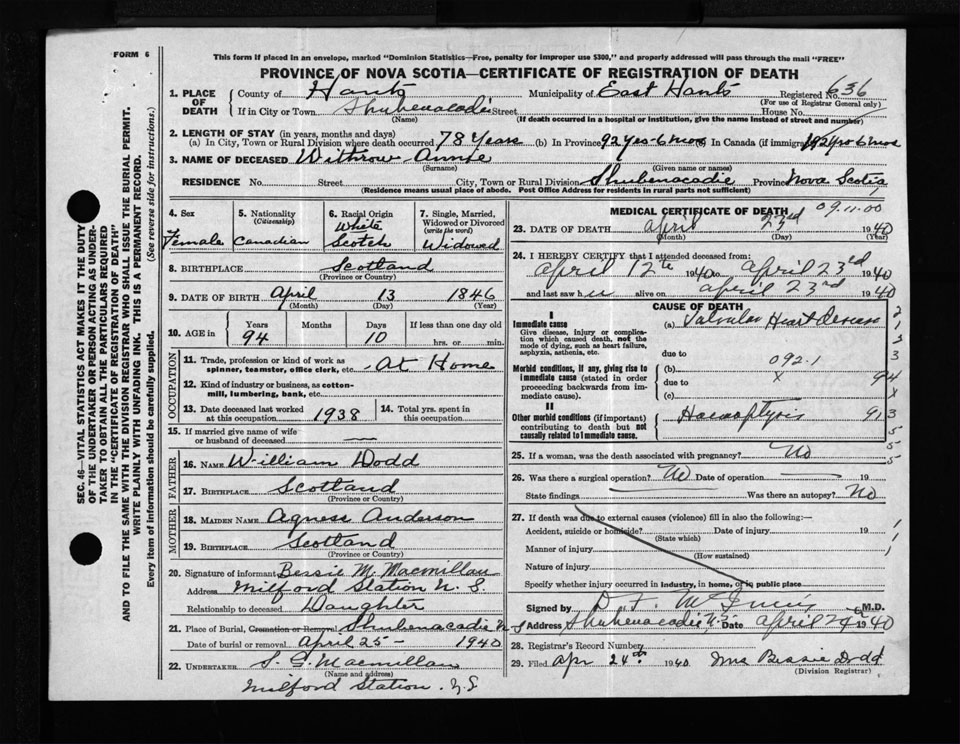 FORM 6
This form if placed in an envelope, marked "Dominion Statistics—Free, penalty for improper use $300," and properly addressed will pass through the mail "FREE"
PROVINCE OF NOVA SCOTIA—CERTIFICATE OF REGISTRATION OF DEATH
SEC. 46—VITAL STATISTICS ACT MAKES IT THE DUTY OF THE UNDERTAKER OR PERSON ACTING AS UNDERTAKER TO OBTAIN ALL THE PARTICULARS REQUIRED IN THE "CERTIFICATE OF REGISTRATION OF DEATH"
AND TO FILE THE SAME WITH THE DIVISION REGISTRAR WHO SHALL ISSUE THE BURIAL PERMIT.
WRITE PLAINLY WITH UNFADING INK. THIS IS A PERMANENT RECORD.
Every item of information should be carefully supplied. (See reverse side for instructions.)
1. PLACE OF DEATH County of Hants Municipality of East Hants Registered No. 636
(For use of Registrar General only)
If in City or Town Shubenacadie Street House No.
(Name) (If death occurred in a hospital or institution, give the name instead of street and number)
2. LENGTH OF STAY (in years, months and days)
(a) In City, Town or Rural Division where death occurred 78 Years (b) In Province 92 Yrs-6 mos (c) In Canada (if immigrant) 92 yrs 6 mos
3. NAME OF DECEASED Withrow Annie
(Surname) (Given name or names)
RESIDENCE No. Street City, Town or Rural Division Shubenacadie Province Nova Scotia
(Residence means usual place of abode. Post Office Address for residents in rural parts not sufficient)
4. Sex Female
5. Nationality (Citizenship) Canadian
6. Racial Origin White Scotch
7. Single, Married, Widowed or Divorced (write the word) Widowed
8. BIRTHPLACE Scotland
(Province or Country)
9. DATE OF BIRTH April 13 1846
(Month) (Day) (Year)
10. AGE in Years Months Days If less than one day old
94 10 hrs. or min.
OCCUPATION
11. Trade, profession or kind of work as spinner, teamster, office clerk, etc. At Home
12. Kind of industry or business, as cotton-mill, lumbering, bank, etc.
13. Date deceased last worked at this occupation 1938
14. Total yrs. spent in this occupation
15. If married give name of wife or husband of deceased —
FATHER
16. NAME William Dodd
17. BIRTHPLACE Scotland
(Province or Country)
MOTHER
18. MAIDEN NAME Agness Anderson
19. BIRTHPLACE Scotland
(Province or Country)
20. Signature of informant Bessie M. Macmillan
Address Milford Station N. S.
Relationship to deceased Daughter
21. Place of Burial, Cremation or Removal Shubenacadie N S
Date of burial or removal April 25 - 1940
22. UNDERTAKER S. G. Macmillan
(Name and address)
Milford Station. N.S
MEDICAL CERTIFICATE OF DEATH 09.11.00
23. DATE OF DEATH April 23rd 1940
(Month) (Day) (Year)
24. I HEREBY CERTIFY that I attended deceased from:
April 12th 1940 to April 23rd 1940
and last saw her alive on April 23rd 1940
CAUSE OF DEATH
I
Immediate cause
Give disease, injury or complication which caused death, not the mode of dying, such as heart failure, asphyxia, asthenia, etc.
(a) Valvular Heart Disease
due to
Morbid conditions, if any, giving rise to immediate cause (stated in order proceeding backwards from immediate cause).
(b) 092.1
due to x 94
(c)
II
Other morbid conditions (important) contributing to death but not causally related to immediate cause.
Haemoptysis 91
25. If a woman, was the death associated with pregnancy? No
26. Was there a surgical operation? No Date of operation 19
State findings Was there an autopsy? No
27. If death was due to external causes (violence) fill in also the following:—
Accident, suicide or homicide? Date of injury 19
(State which)
Manner of injury
(How sustained)
Nature of injury
Specify whether injury occurred in industry, in home, or in public place
Signed by D. F. McInnis M.D.
Address Shubenacadie N.S. Date April 24 1940
28. Registrar's Record Number
29. Filed Apr 24th 1940 Mrs Bessie Dodd
(Division Registrar)